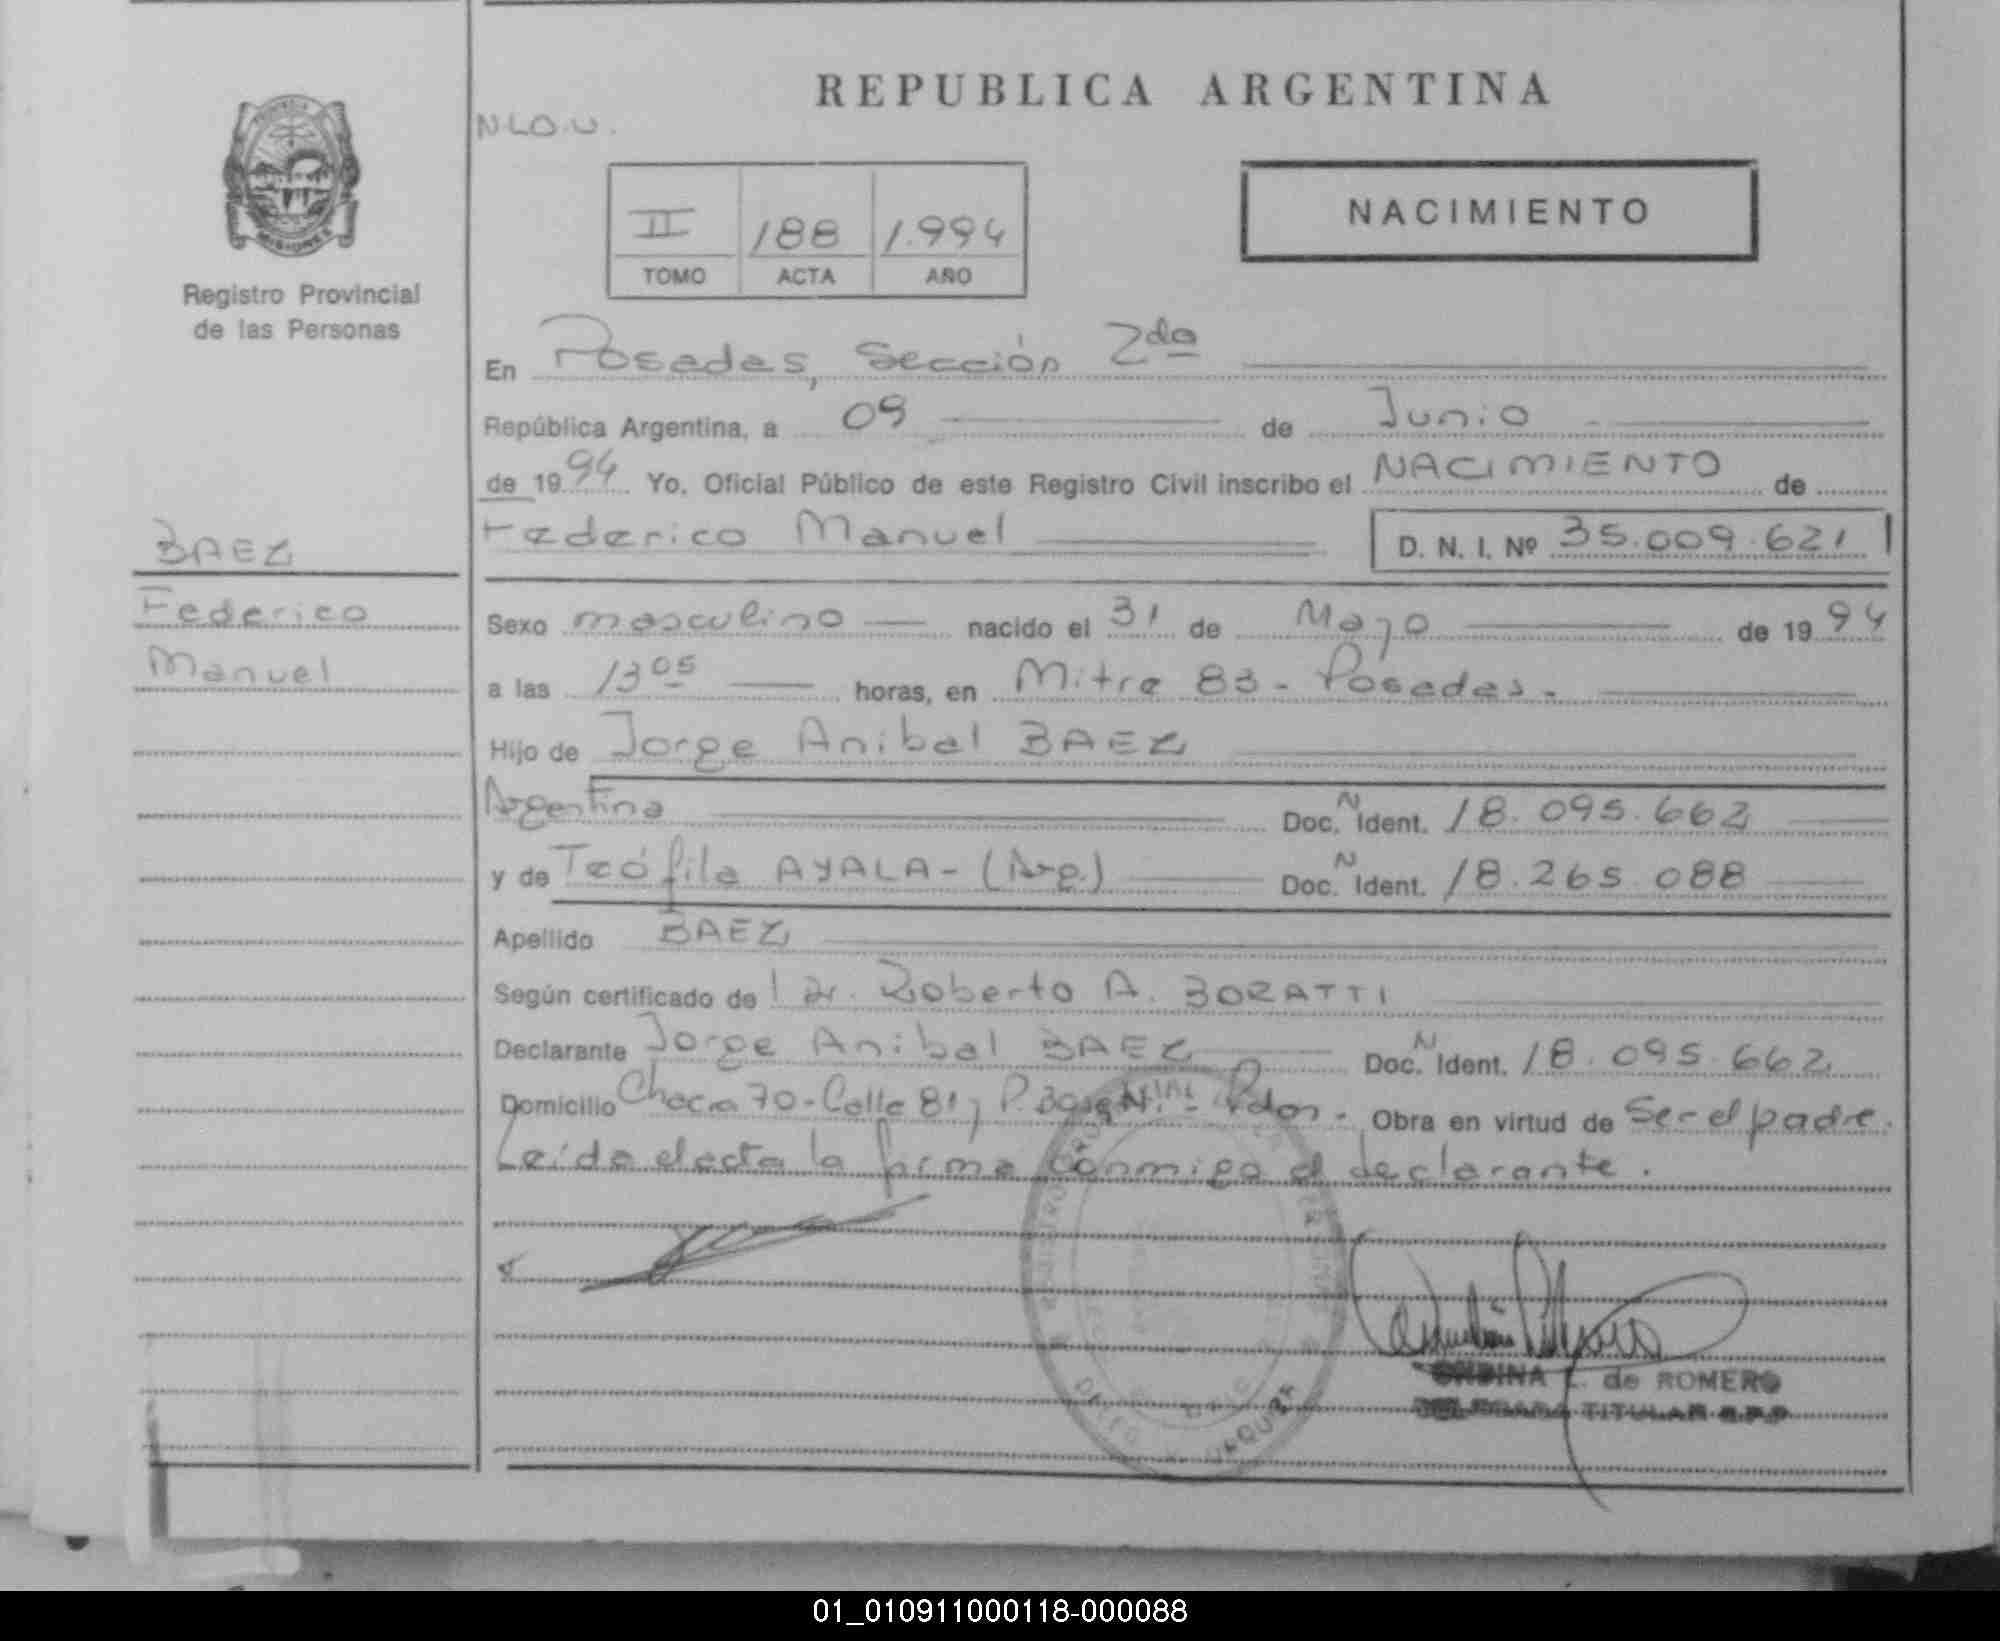 REPUBLICA ARGENTINA
N.L.O.U.
MISIONES
Registro Provincial
de las Personas
II 188 1.994
TOMO ACTA AÑO
NACIMIENTO
En Posadas, Sección 2da
República Argentina, a 09 de Junio
de 1994 Yo, Oficial Público de este Registro Civil inscribo el NACIMIENTO de
Federico Manuel D. N. I. Nº 35.009.621
BAEZ
Federico
Manuel
Sexo masculino nacido el 31 de Mayo de 1994
a las 13 05 horas, en Mitre 83 - Posadas.-
Hijo de Jorge Anibal BAEZ
Argentina Doc. N Ident. 18.095.662
y de Teófila AYALA - (Arg.) Doc. N Ident. 18.265.088
Apellido BAEZ
Según certificado de l Dr. Roberto A. BORATTI
Declarante Jorge Anibal BAEZ Doc. N Ident. 18.095.662
Domicilio Chacra 70 - Calle 81, Pdas. - Obra en virtud de Ser el padre.
Leída el acta la firma conmigo el declarante.
ONDINA de ROMERO
TITULAR
01_010911000118-000088